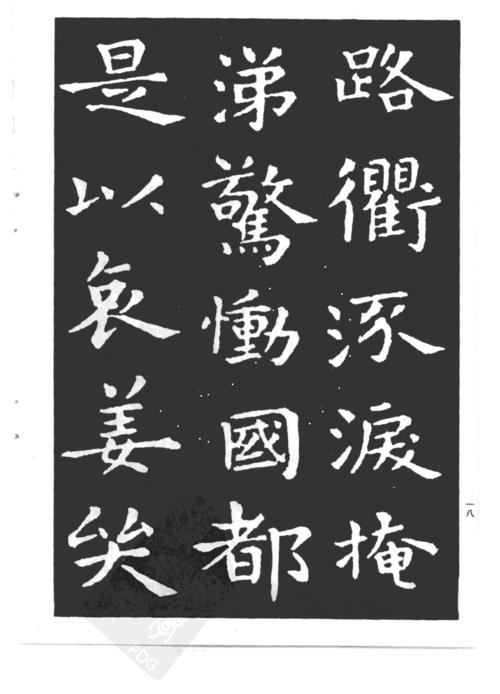 路衢涿淚掩
涕驚慟國都
是以哀姜
一八
PDG